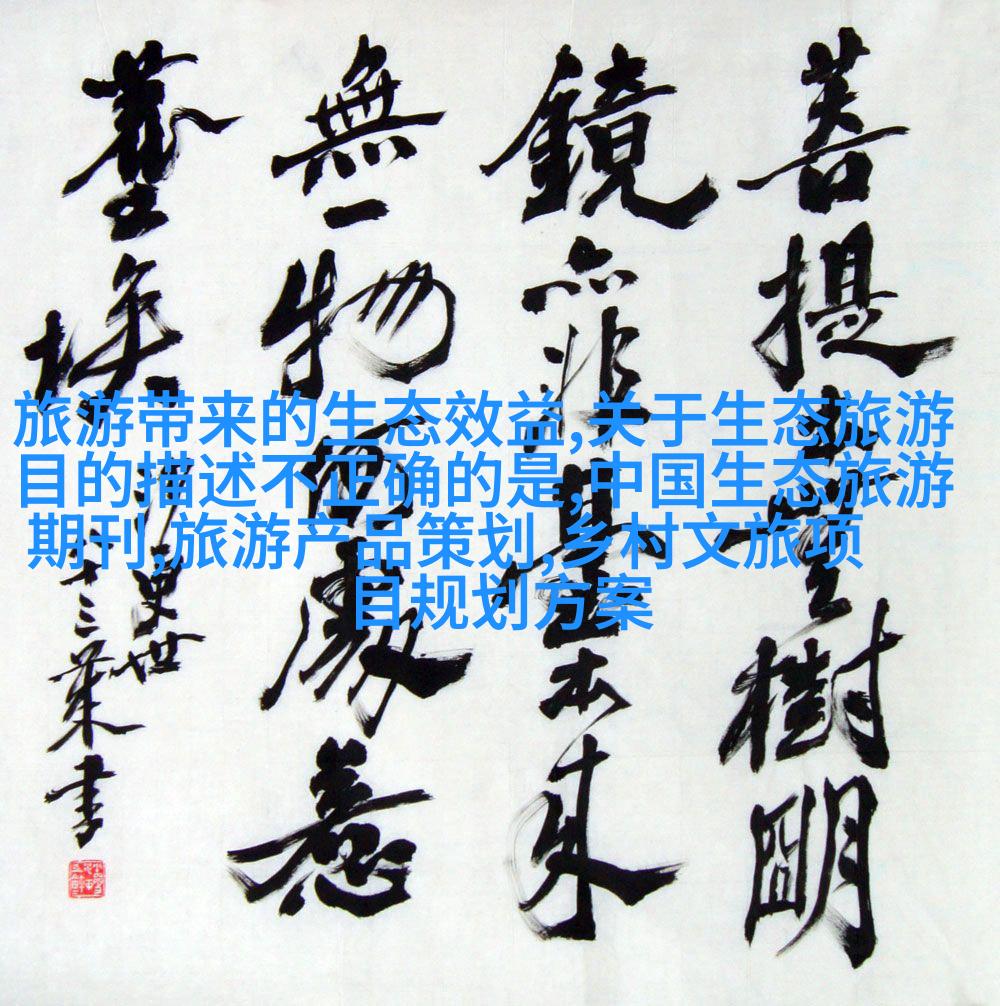 旅游带来的生态效益,关于生态旅游
目的描述不正确的是,中国生态旅游
期刊,旅游产品策划,乡村文旅项
目规划方案
菩提樹明
鏡亦非臺本来
無一物何處惹
塵埃
十三葉書